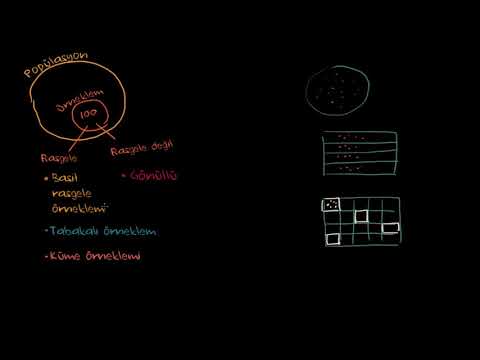 Popülasyon
örneklem
100
Rasgele
Rasgele değil
• Basit
rasgele
örneklemi
• Gönüllü
• Tabakalı örneklem
• Küme örneklemi